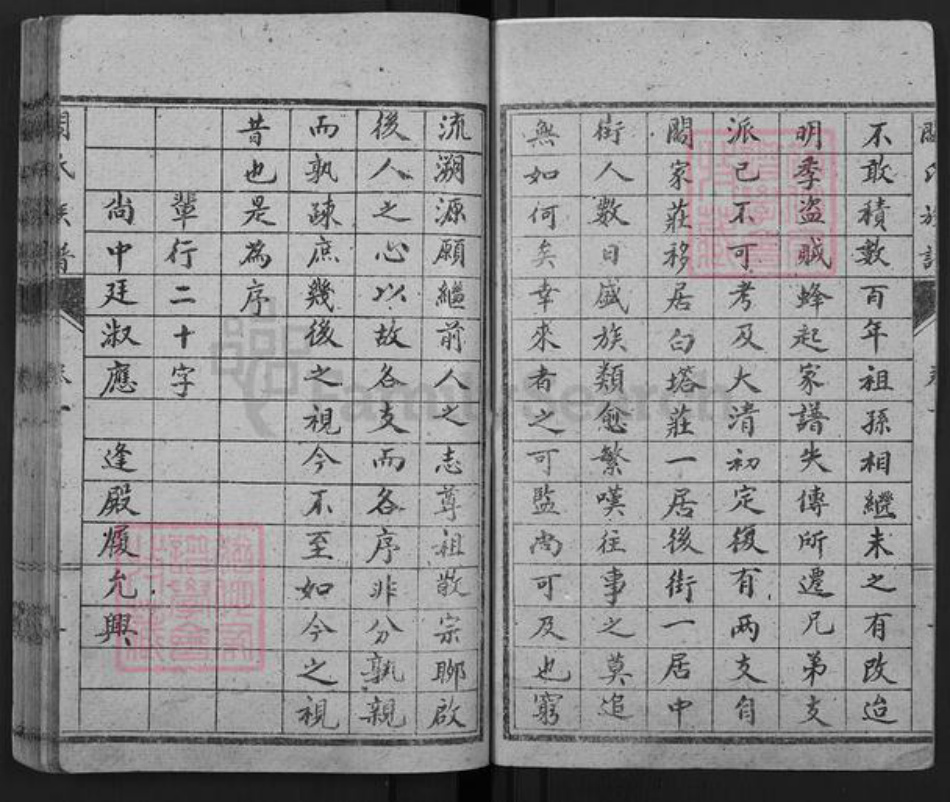 不敢積數百年祖孫相繼未之有改迨
明季盜賊蜂起家譜失傳所遷兄弟支
派已不可考及大清初定復有兩支自
閻家莊移居白塔莊一居後街一居中
街人數日盛族類愈繁嘆往事之莫追
無如何矣幸來者之可監尚可及也窮
流溯源願繼前人之志尊祖敬宗聊啟
後人之心以故各支而各序非分孰親
而孰疎庶幾後之視今不至如今之視
昔也是為序
輩行二十字
尚中廷淑應 逢殿履允興
FamilySearch